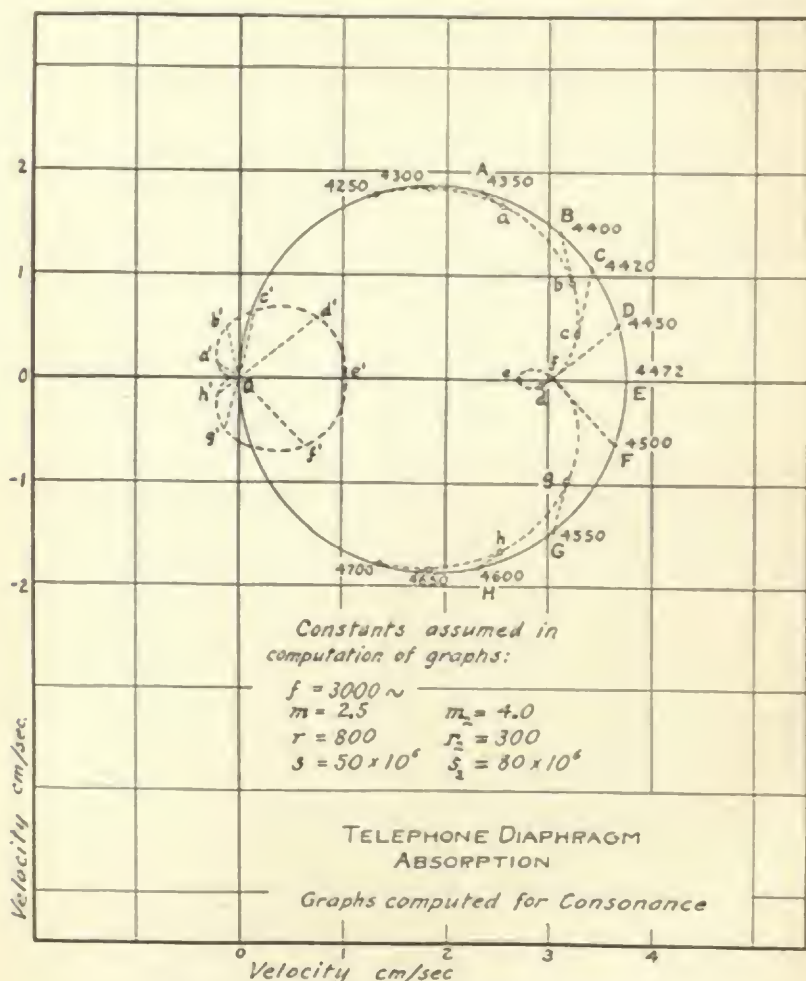 2
1
0
-1
-2
4250
4300
A
4350
a
B
4400
b
C
4420
c
D
4450
4472
E
f
e
d
4500
F
g
4550
G
h
4600
H
4650
4700
b'
c'
d'
a'
e'
h'
g'
f'
Constants assumed in
computation of graphs:
f = 3000 ~
m = 2.5 m₂ = 4.0
r = 800 r₂ = 300
s = 50 × 10⁶ s₂ = 80 × 10⁶
TELEPHONE DIAPHRAGM
ABSORPTION
Graphs computed for Consonance
Velocity cm/sec.
0 1 2 3 4
Velocity cm/sec